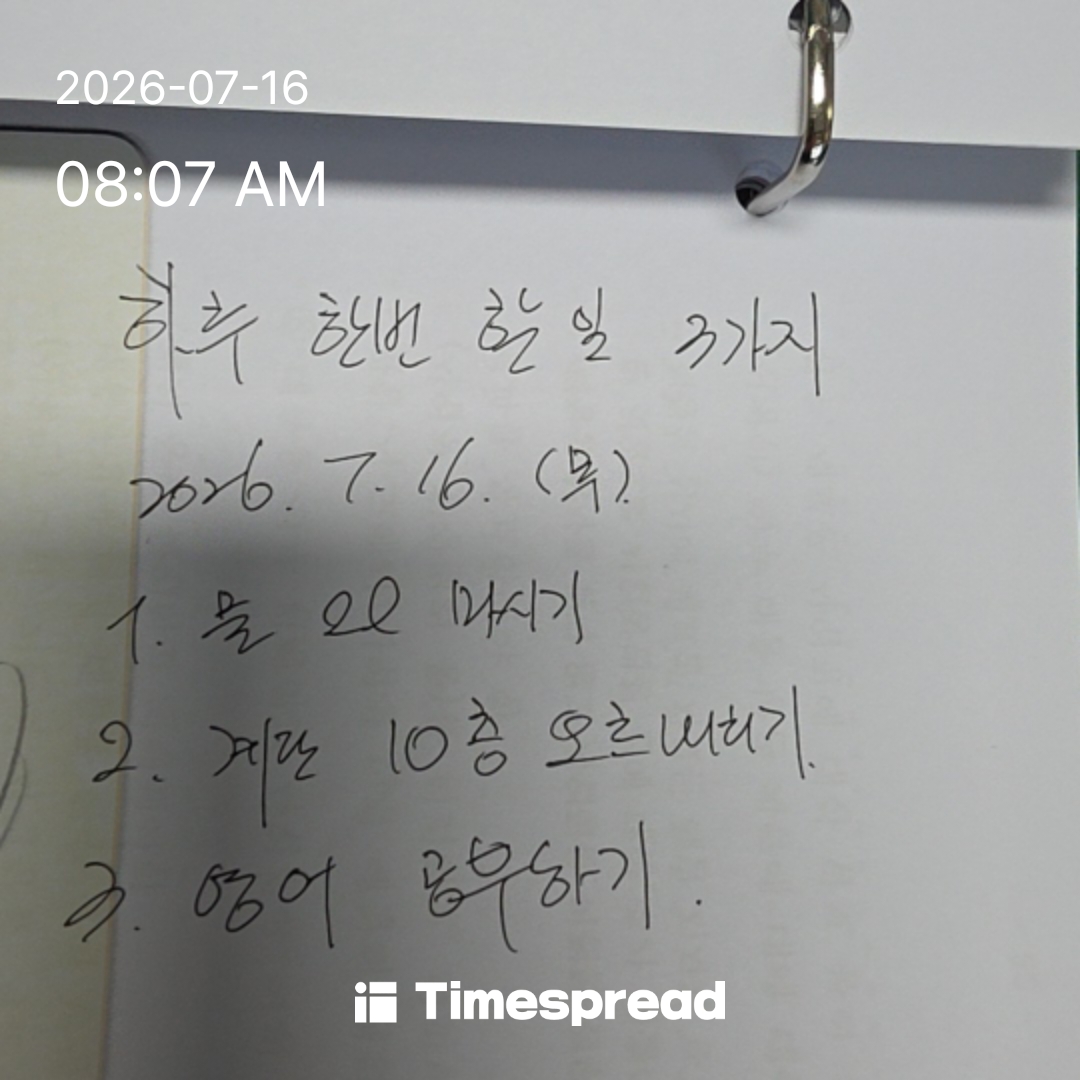 2026-07-16
08:07 AM
하루 한번 할 일 3가지
2026. 7. 16. (목).
1. 물 2l 마시기
2. 계단 10층 오르내리기.
3. 영어 공부하기.
Timespread